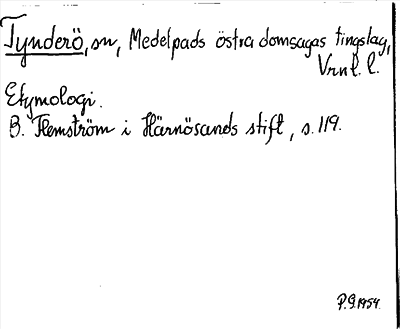 Tynderö, sn, Medelpads östra domsagas tingslag,
Vrnl. l.
Etymologi.
B. Flemström i Härnösands stift, s. 119.
P.G. 1954.